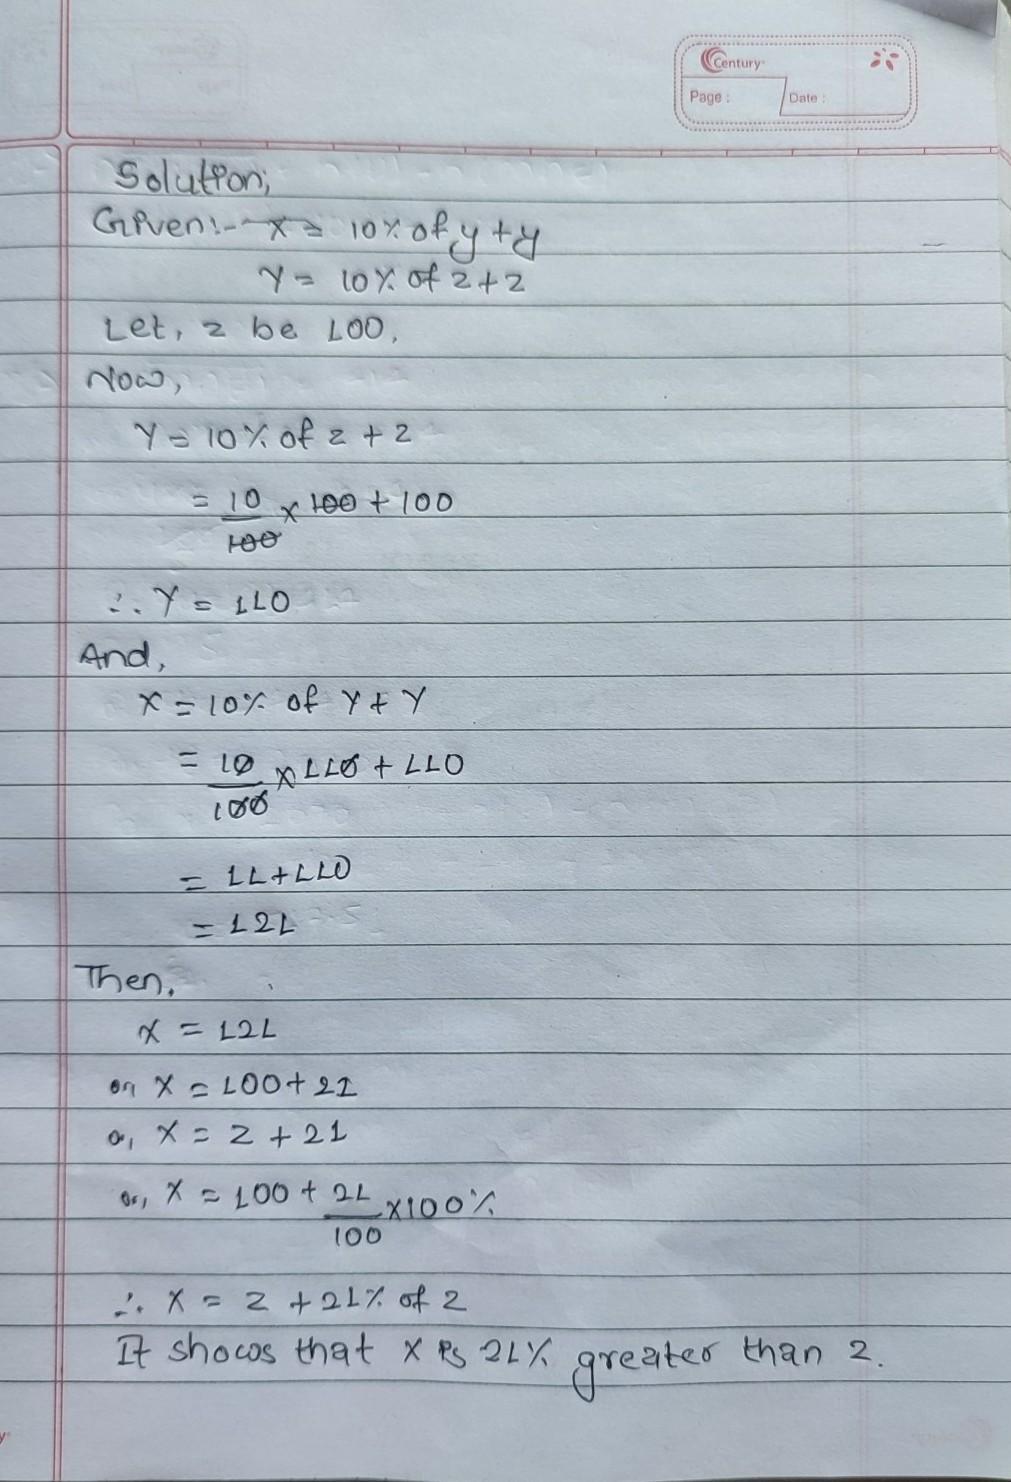 Century
Page :
Date :
Solution;
Given:- x = 10% of y + y
Y = 10% of z + z
Let, z be 100,
Now,
Y = 10% of z + z
= 10/100 × 100 + 100
∴ Y = 110
And,
X = 10% of Y + Y
= 10/100 × 110 + 110
= 11 + 110
= 121
Then,
x = 121
or, x = 100 + 21
or, x = z + 21
or, x = 100 + 21/100 × 100%
∴ x = z + 21% of z
It shows that x is 21% greater than z.